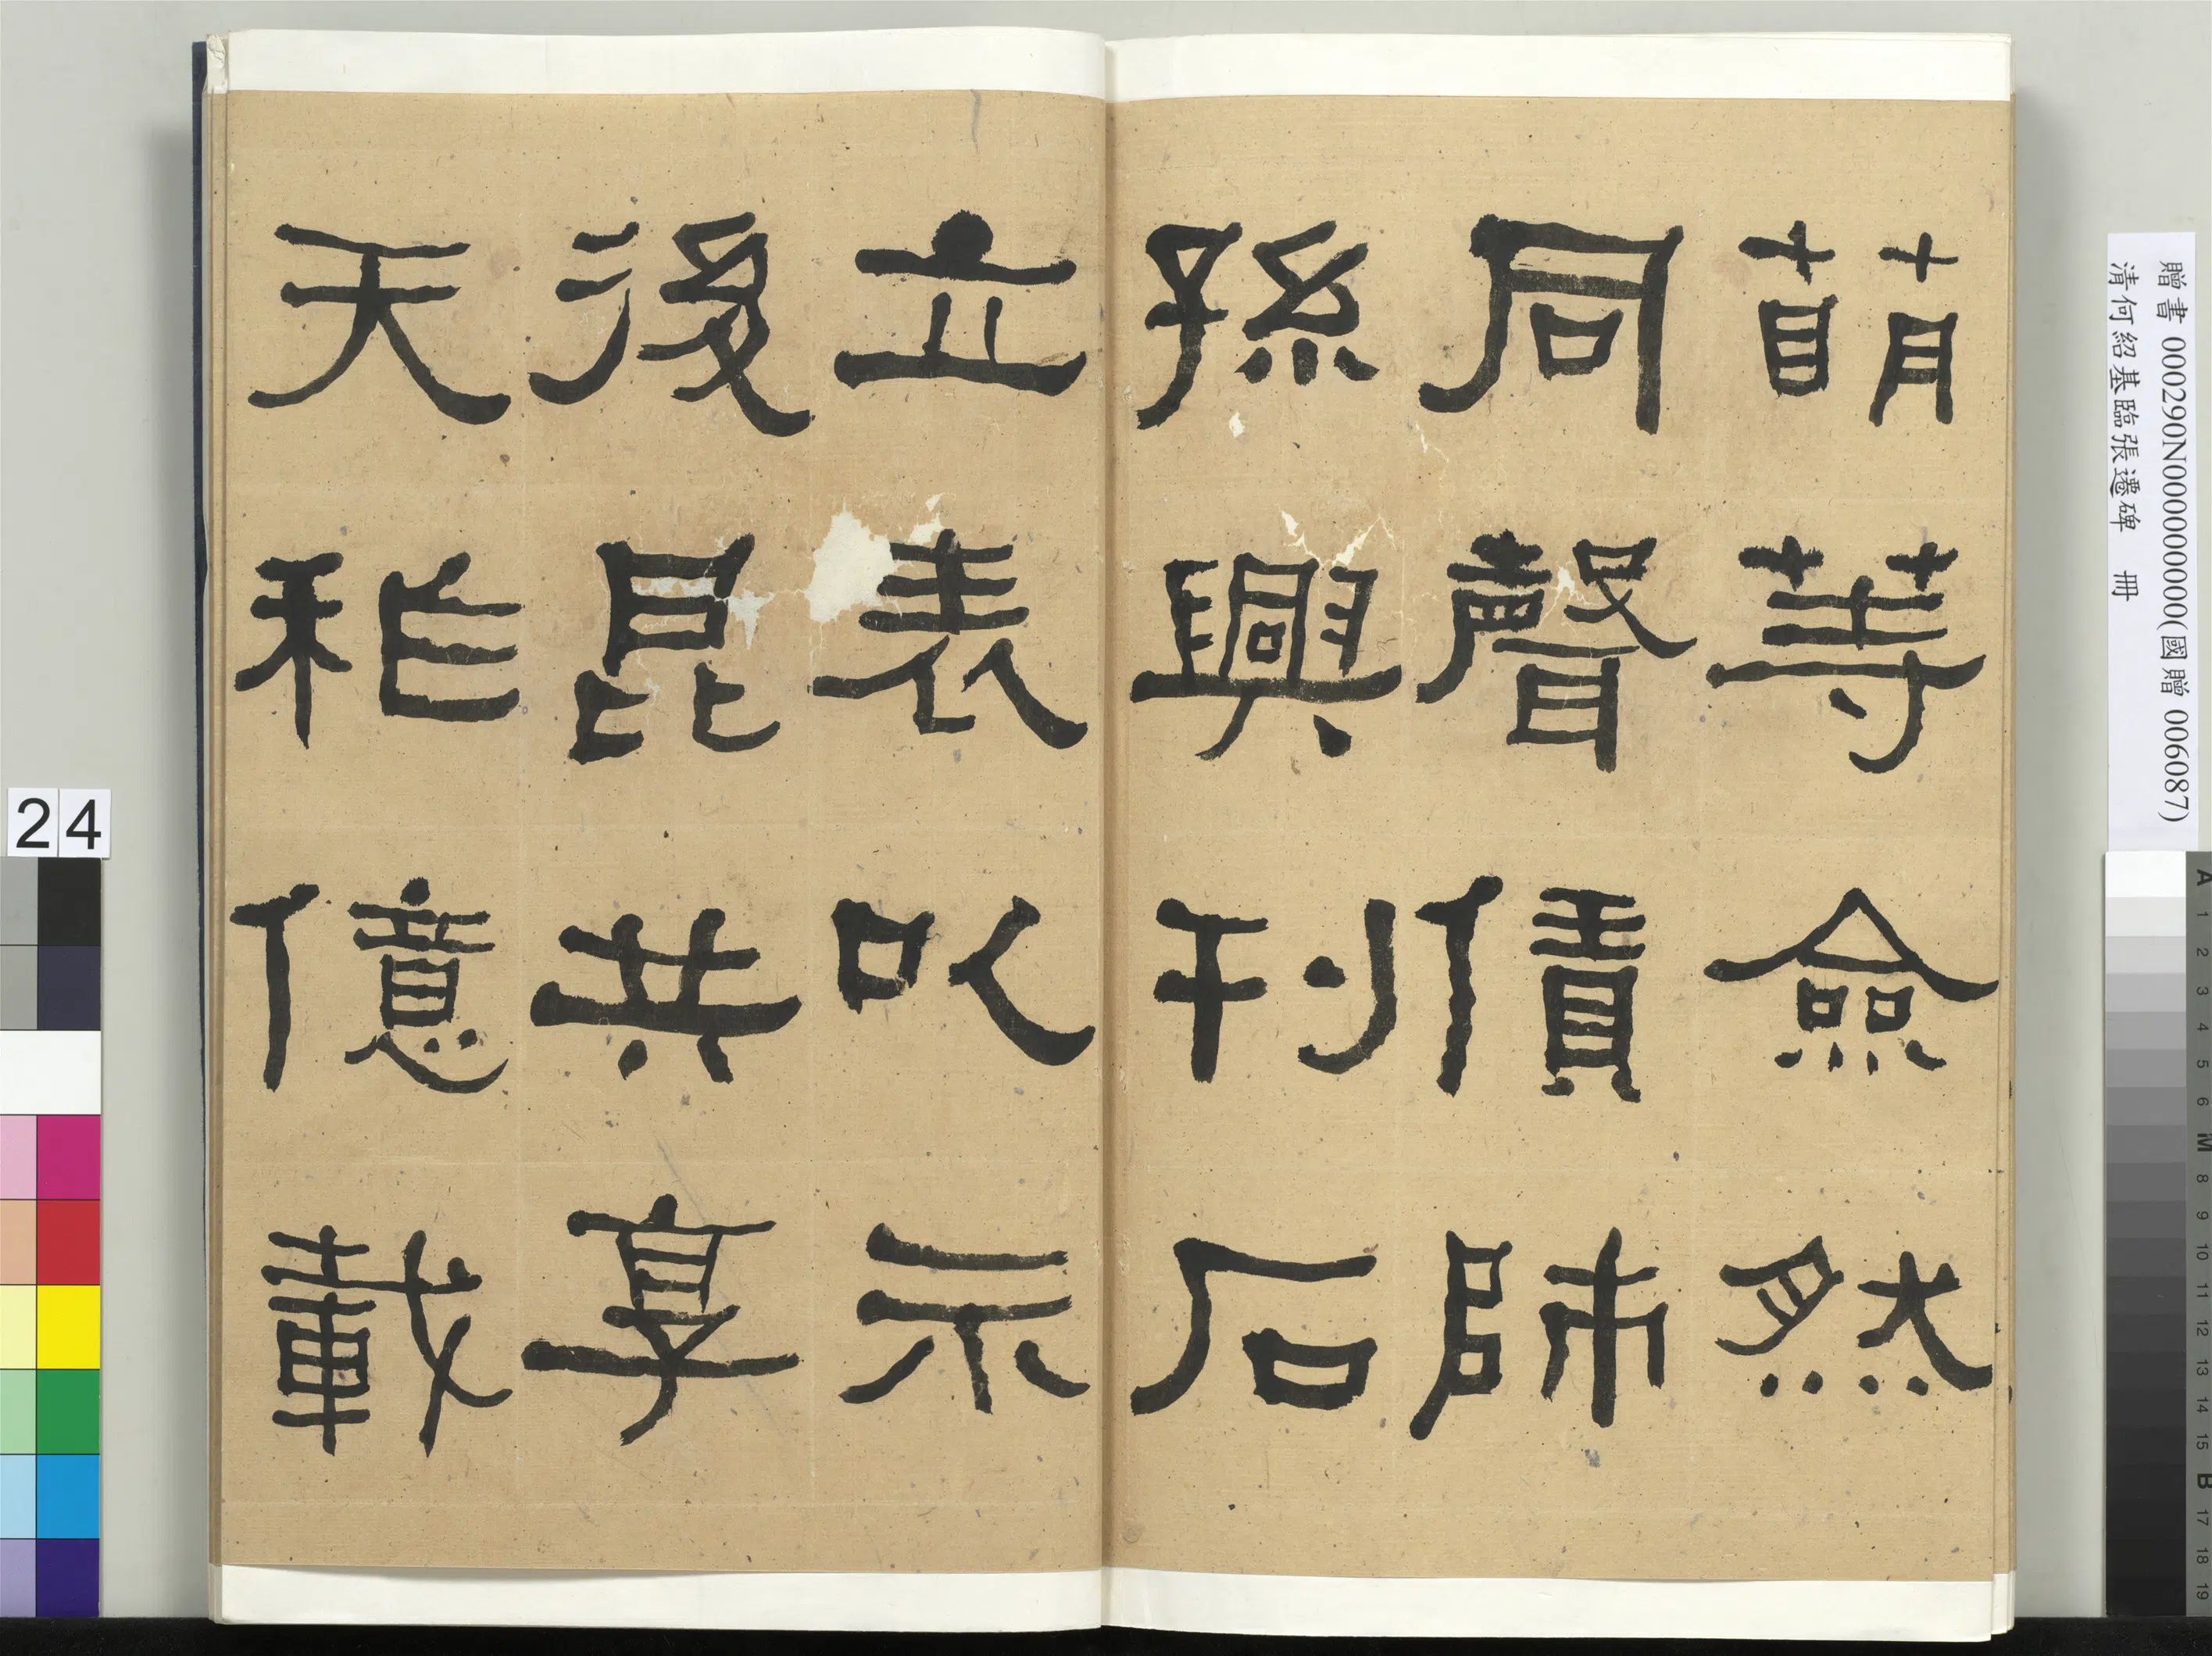 萌䓁僉然
同聲僨師
孫興刊石
立表以示
後昆共享
天秨億載
贈書 000290N000000000(國贈 006087)
清何紹基臨張遷碑 冊
24
A 1 2 3 4 5 6 M 8 9 10 11 12 13 14 15 B 17 18 19